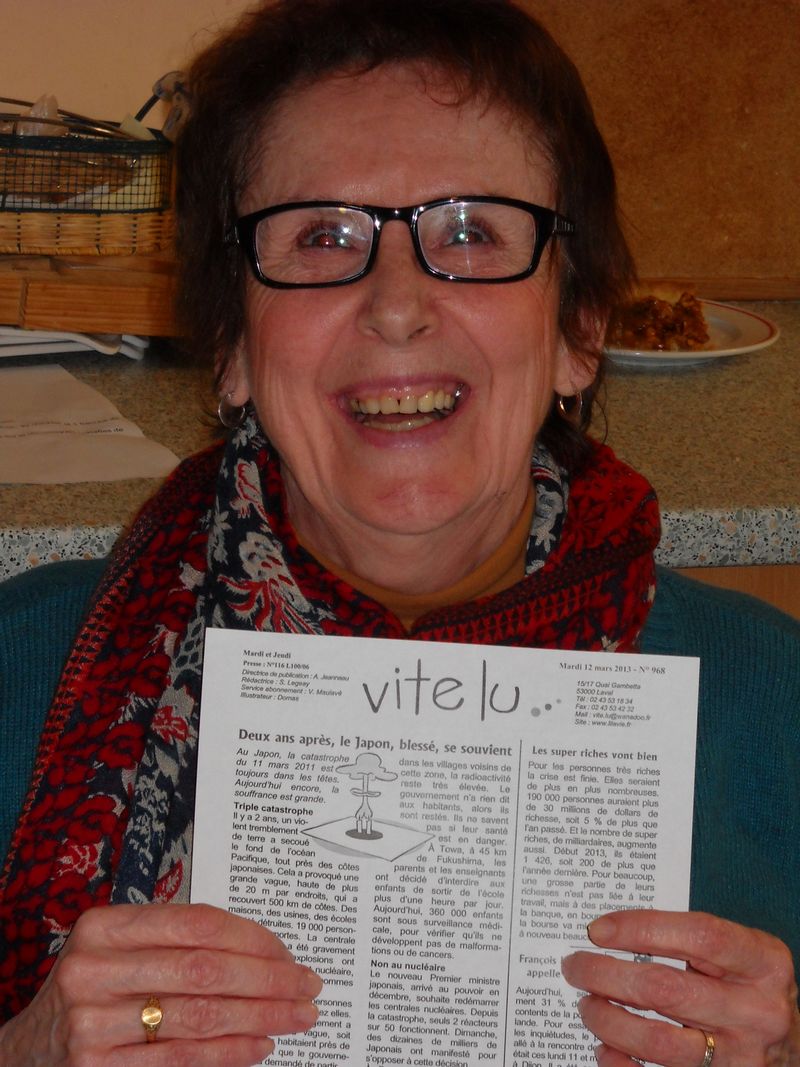 Mardi et Jeudi
Presse : N°116 L100/06
Directrice de publication : A. Jeanneau
Rédactrice : S. Legeay
Service abonnement : V. Maulavé
Illustrateur : Domas
vite lu...
Mardi 12 mars 2013 - N° 968
15/17 Quai Gambetta
53000 Laval
Tél : 02 43 53 18 34
Fax : 02 43 53 42 32
Mail : vite.lu@wanadoo.fr
Site : www.lilavie.fr
Deux ans après, le Japon, blessé, se souvient
Au Japon, la catastrophe
du 11 mars 2011 est
toujours dans les têtes.
Aujourd'hui encore, la
souffrance est grande.
Triple catastrophe
Il y a 2 ans, un vio-
lent tremblement
de terre a secoué
le fond de l'océan
Pacifique, tout près des côtes
japonaises. Cela a provoqué une
grande vague, haute de plus
de 20 m par endroits, qui a
recouvert 500 km de côtes. Des
maisons, des usines, des écoles
détruites. 19 000 person-
ortes. La centrale
a été gravement
explosions ont
nucléaire,
ommes
ersonnes
ez elles.
ngement a
vague, soit
habitaient près de
que le gouverne-
demandé de partir
dans les villages voisins de
cette zone, la radioactivité
reste très élevée. Le
gouvernement n'a rien dit
aux habitants, alors ils
sont restés. Ils ne savent
pas si leur santé
est en danger.
À Towa, à 45 km
de Fukushima, les
parents et les enseignants
ont décidé d'interdire aux
enfants de sortir de l'école
plus d'une heure par jour.
Aujourd'hui, 360 000 enfants
sont sous surveillance médi-
cale, pour vérifier qu'ils ne
développent pas de malforma-
tions ou de cancers.
Non au nucléaire
Le nouveau Premier ministre
japonais, arrivé au pouvoir en
décembre, souhaite redémarrer
les centrales nucléaires. Depuis
la catastrophe, seuls 2 réacteurs
sur 50 fonctionnent. Dimanche,
des dizaines de milliers de
Japonais ont manifesté pour
s'opposer à cette décision
Les super riches vont bien
Pour les personnes très riches
la crise est finie. Elles seraient
de plus en plus nombreuses.
190 000 personnes auraient plus
de 30 millions de dollars de
richesse, soit 5 % de plus que
l'an passé. Et le nombre de super
riches, de milliardaires, augmente
aussi. Début 2013, ils étaient
1 426, soit 200 de plus que
l'année dernière. Pour beaucoup,
une grosse partie de leurs
richesses n'est pas liée à leur
travail, mais à des placements à
la banque, en bour
la bourse va mi
à nouveau beauc
François
appelle
Aujourd'hui, s
ment 31 % d
contents de la po
lande. Pour essa
les inquiétudes, le p
allé à la rencontre de
était ces lundi 11 et m
à Dijon. Il a été